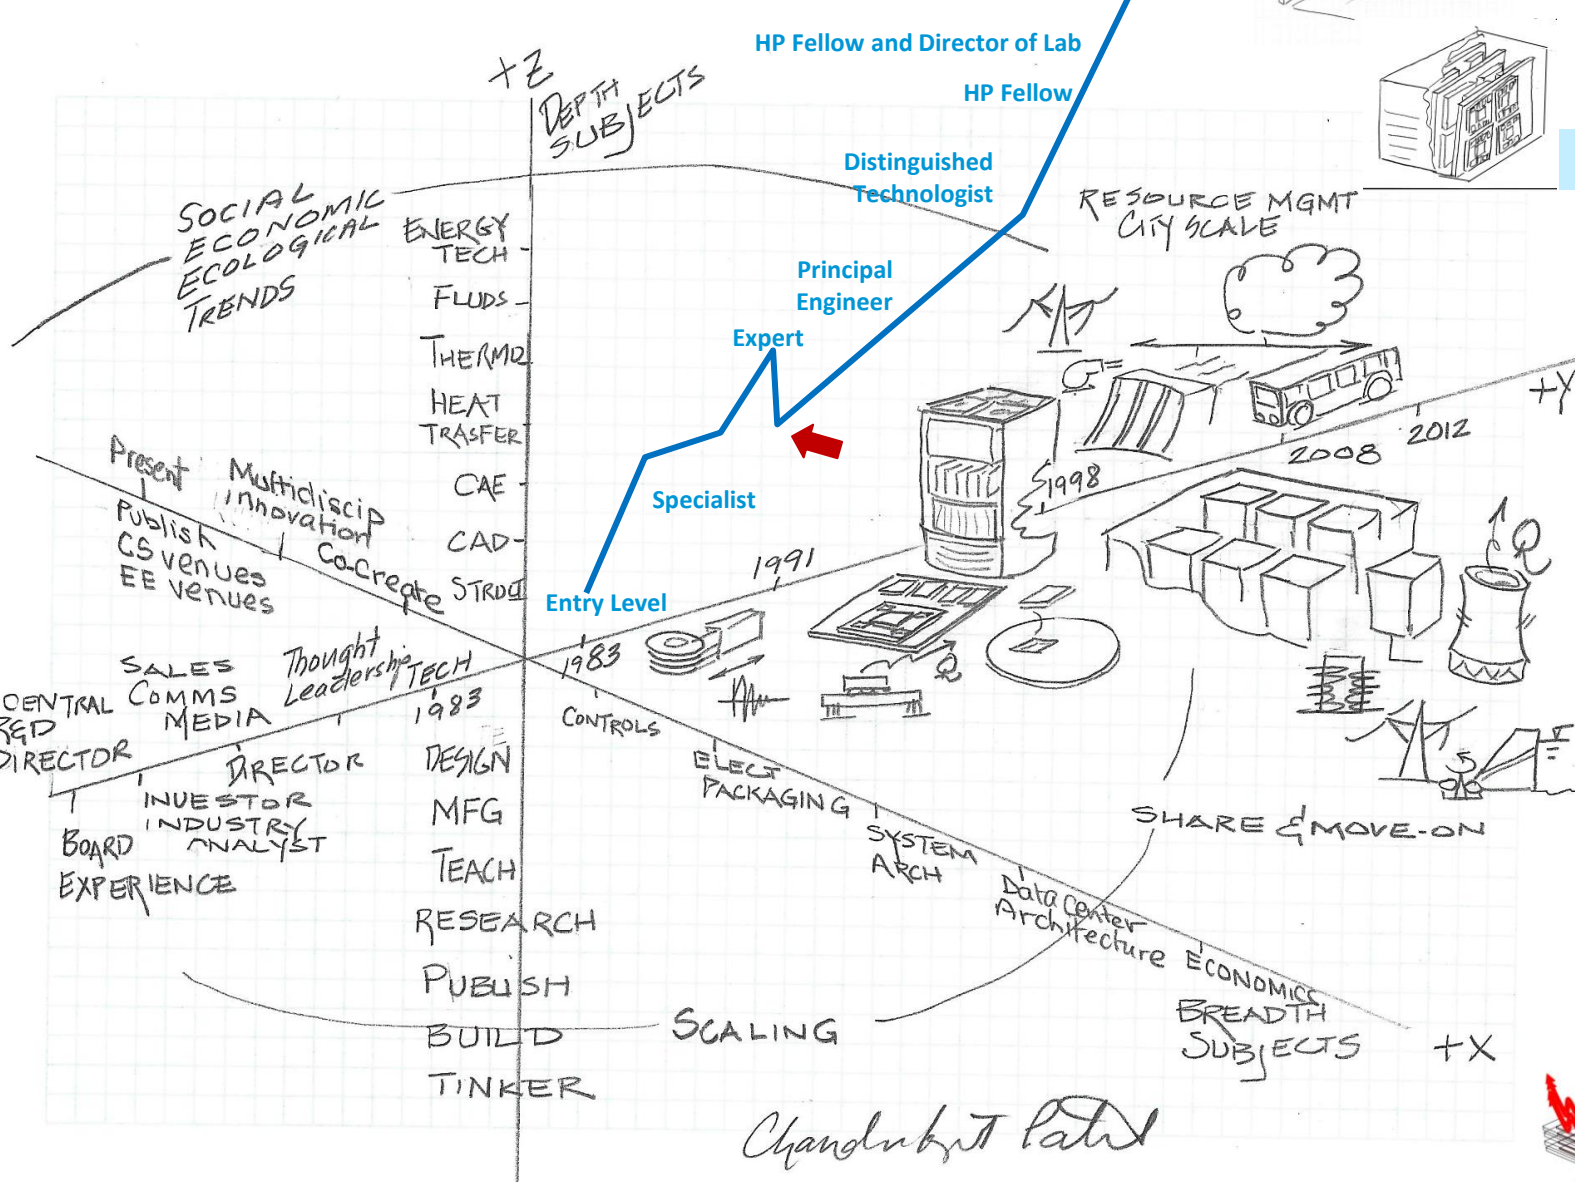 HP Fellow and Director of Lab
HP Fellow
Distinguished
Technologist
Principal
Engineer
Expert
Specialist
Entry Level
+Z
DEPTH
SUBJECTS
SOCIAL
ECONOMIC
ECOLOGICAL
TRENDS
ENERGY
TECH
FLUDS
THERMO
HEAT
TRASFER
CAE
CAD
STRUCT
RESOURCE MGMT
CITY SCALE
+Y
2012
2008
1998
1991
1983
Q
Q
Present
Multidiscip
innovation
Publish
CS venues
EE venues
Co-create
Thought
Leadership
TECH
1983
SALES
COMMS
MEDIA
CENTRAL
R&D
DIRECTOR
DIRECTOR
INVESTOR
INDUSTRY
ANALYST
BOARD
EXPERIENCE
DESIGN
MFG
TEACH
RESEARCH
PUBLISH
BUILD
TINKER
CONTROLS
ELECT
PACKAGING
SYSTEM
ARCH
Data Center
Architecture
ECONOMICS
BREADTH
SUBJECTS
+X
SHARE & MOVE-ON
SCALING
Chandrakant Patel